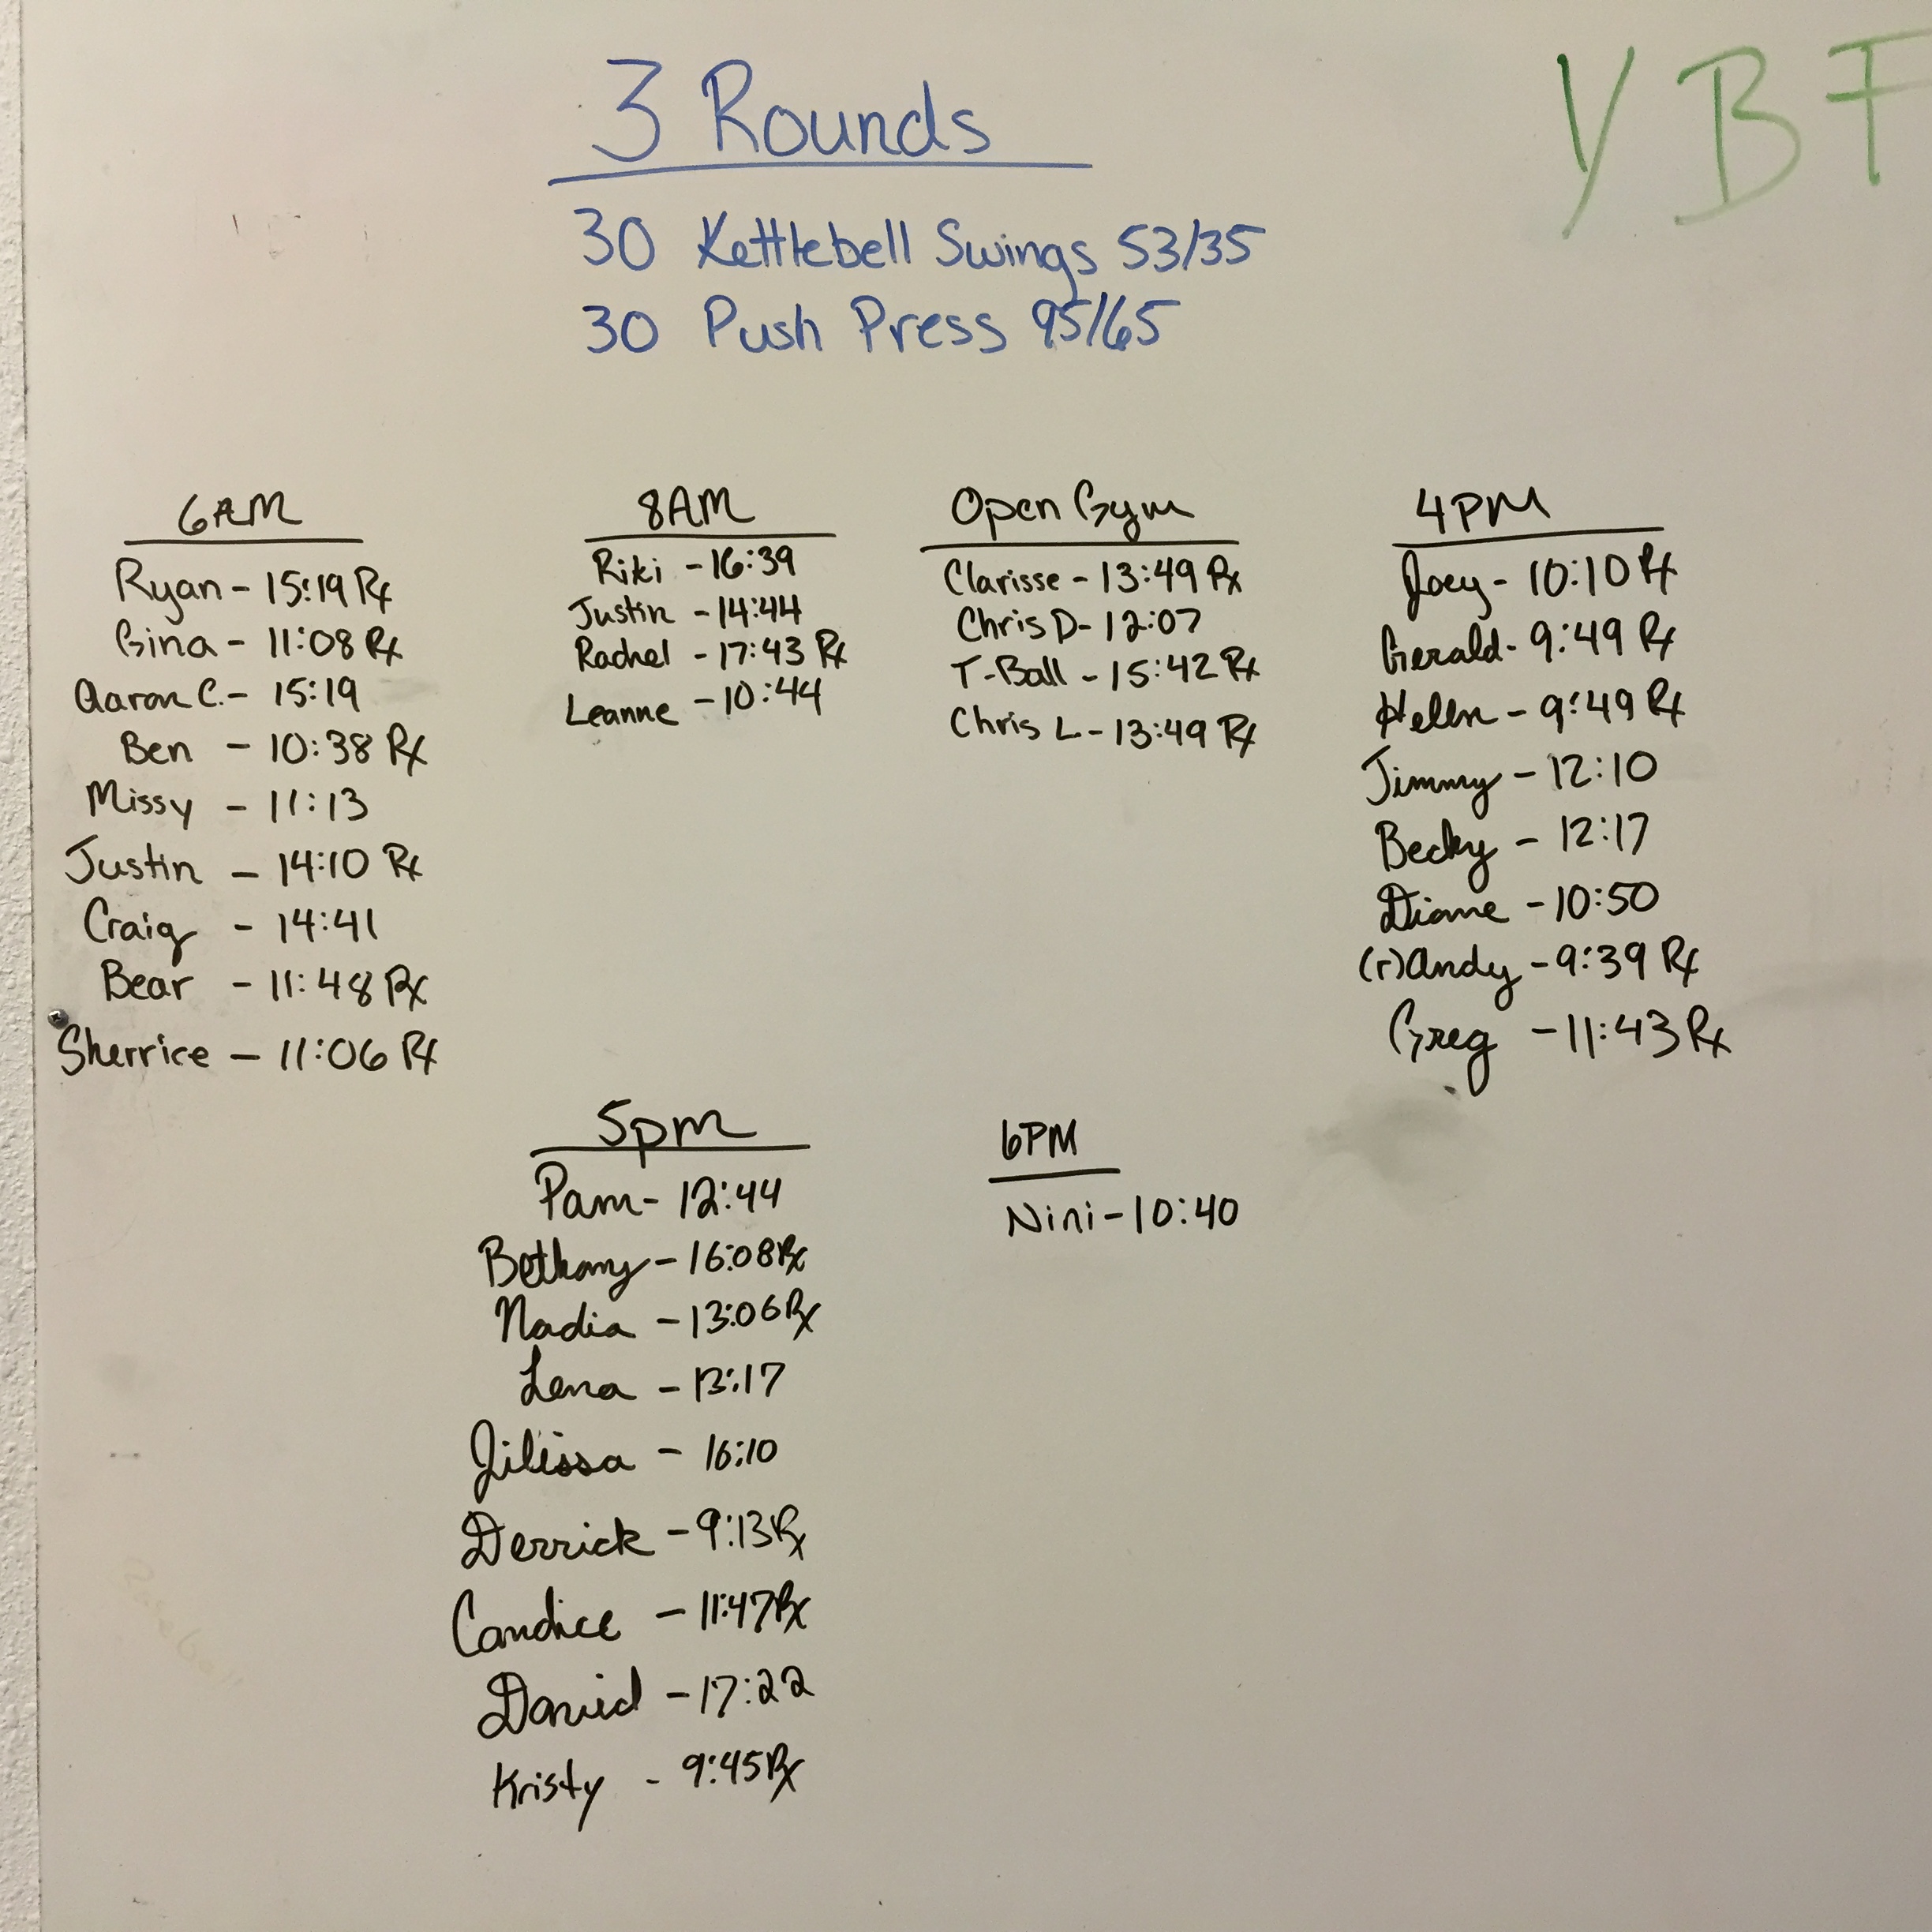 3 Rounds
YBF
30 Kettlebell Swings 53/35
30 Push Press 95/65
6AM
Ryan - 15:19 Rx
Gina - 11:08 Rx
Aaron C. - 15:19
Ben - 10:38 Rx
Missy - 11:13
Justin - 14:10 Rx
Craig - 14:41
Bear - 11:48 Rx
Sherrice - 11:06 Rx
8AM
Riki - 16:39
Justin - 14:44
Rachel - 17:43 Rx
Leanne - 10:44
Open Gym
Clarisse - 13:49 Rx
Chris D - 12:07
T-Ball - 15:42 Rx
Chris L - 13:49 Rx
4PM
Joey - 10:10 Rx
Gerald - 9:49 Rx
Helen - 9:49 Rx
Jimmy - 12:10
Becky - 12:17
Diane - 10:50
(r)andy - 9:39 Rx
Greg - 11:43 Rx
5pm
Pam - 12:44
Bethany - 16:08 Rx
Nadia - 13:06 Rx
Lena - 13:17
Jilissa - 16:10
Derrick - 9:13 Rx
Candice - 11:47 Rx
David - 17:22
Kristy - 9:45 Rx
6PM
Nini - 10:40